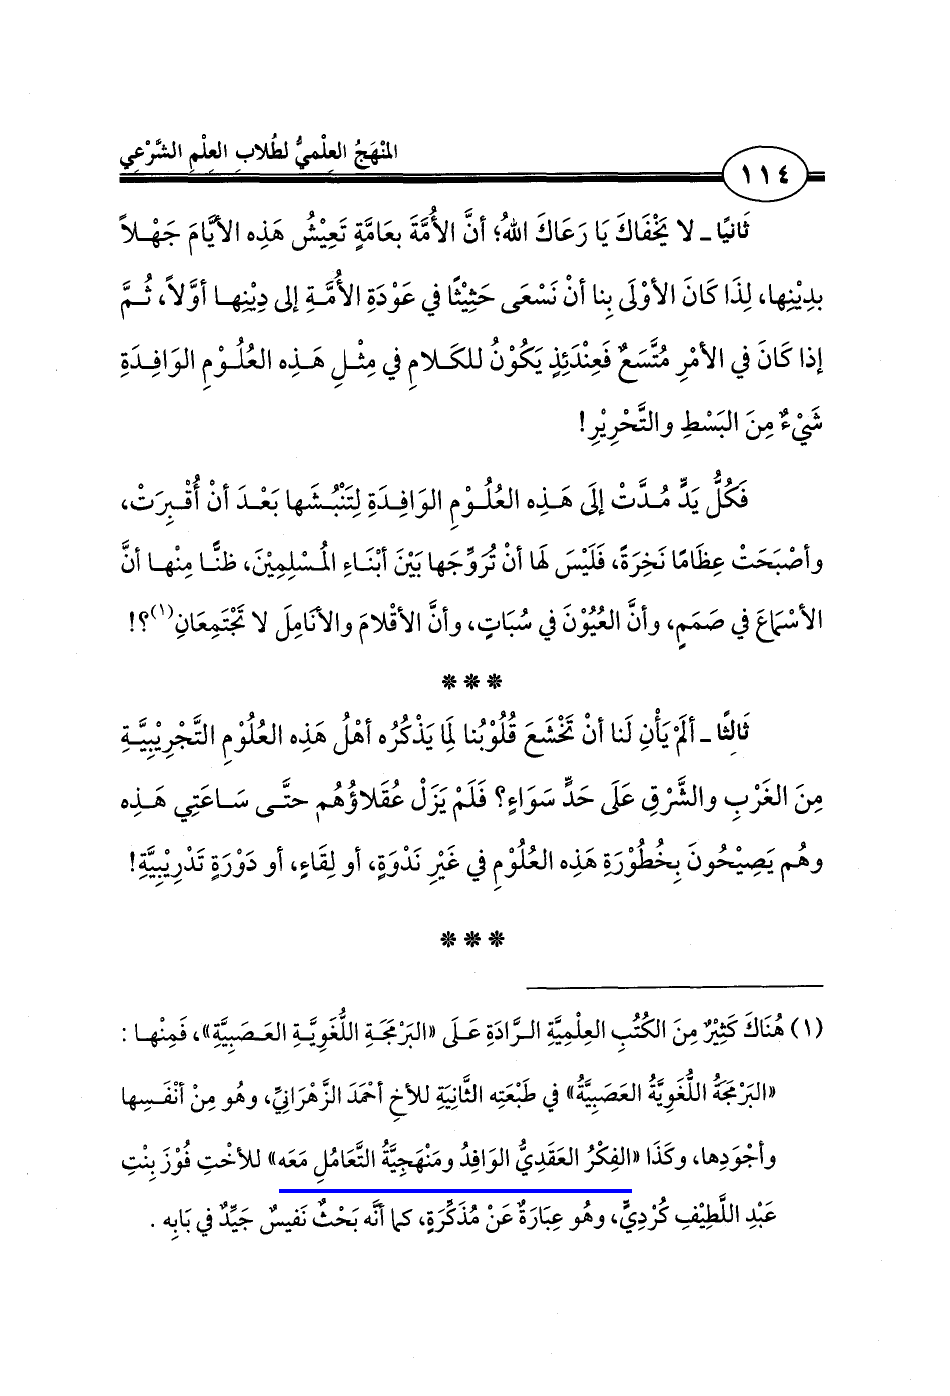 المَنْهَجُ العِلْمِيُّ لطُلابِ العِلْمِ الشَّرْعِي
١١٤
ثَانيًا ـ لا يَخْفَاكَ يَا رَعَاكَ اللهُ؛ أنَّ الأُمَّةَ بعَامَّةٍ تَعِيْشُ هَذِه الأيَّامَ جَهْلاً
بدِيْنِها، لِذَا كَانَ الأوْلَى بِنا أنْ نَسْعَى حَثِيْثًا في عَوْدَةِ الأُمَّةِ إلى دِيْنِهـا أوَّلاً، ثُمَّ
إذا كَانَ في الأمْرِ مُتَّسَعٌ فَعِنْدَئِذٍ يَكُوْنُ للكَلامِ في مِثْلِ هَذِه العُلُوْمِ الوَافِدَةِ
شَيْءٌ مِنَ البَسْطِ والتَّحْرِيْرِ!
فَكُلُّ يَدٍّ مُدَّتْ إلَى هَذِه العُلُوْمِ الوَافِدَةِ لِتَنْبُشَها بَعْدَ أنْ أُقْبِرَتْ،
وأصْبَحَتْ عِظَامًا نَخِرَةً، فَلَيْسَ لَها أنْ تُرَوِّجَها بَيْنَ أبْنَاءِ المُسْلِمِيْنَ، ظَنًّا مِنْها أنَّ
الأسْمَاعَ في صَمَمٍ، وأنَّ العُيُوْنَ في سُبَاتٍ، وأنَّ الأقْلامَ والأنَامِلَ لا تَجْتَمِعَانِ(١)؟!
* * *
ثَالِثًا ـ ألَمْ يَأنِ لَنا أنْ تَخْشَعَ قُلُوْبُنا لِمَا يَذْكُرُه أهْلُ هَذِه العُلُوْمِ التَّجْرِيْبِيَّةِ
مِنَ الغَرْبِ والشَّرْقِ عَلَى حَدٍّ سَوَاءٍ؟ فَلَمْ يَزَلْ عُقَلاؤُهُم حتَّى سَاعَتِي هَذِه
وهُم يَصِيْحُونَ بِخُطُوْرَةِ هَذِه العُلُوْمِ في غَيْرِ نَدْوَةٍ، أو لِقَاءٍ، أو دَوْرَةٍ تَدْرِيْبِيَّةِ!
* * *
(١) هُنَاكَ كَثِيْرٌ مِنَ الكُتُبِ العِلْمِيَّةِ الرَّادَةِ عَلَى «البَرْمَجَةِ اللُّغَوِيَّةِ العَصَبِيَّةِ»، فَمِنْها :
«البَرْمَجَةُ اللُّغَوِيَّةُ العَصَبِيَّةُ» في طَبْعَتِه الثَّانِيَةِ للأخِ أحْمَدَ الزَّهْرَانيِّ، وهُو مِنْ أنْفَسِها
وأجْوَدِها، وكَذَا «الفِكْرُ العَقَدِيُّ الوَافِدُ ومَنْهَجِيَّةُ التَّعَامُلِ مَعَه» للأخْتِ فُوْزَ بِنْتِ
عَبْدِ اللَّطِيْفِ كُرْدِيٍّ، وهُو عِبَارَةٌ عَنْ مُذَكِّرَةٍ، كما أنَّه بَحْثٌ نَفيسٌ جَيِّدٌ في بَابِه .